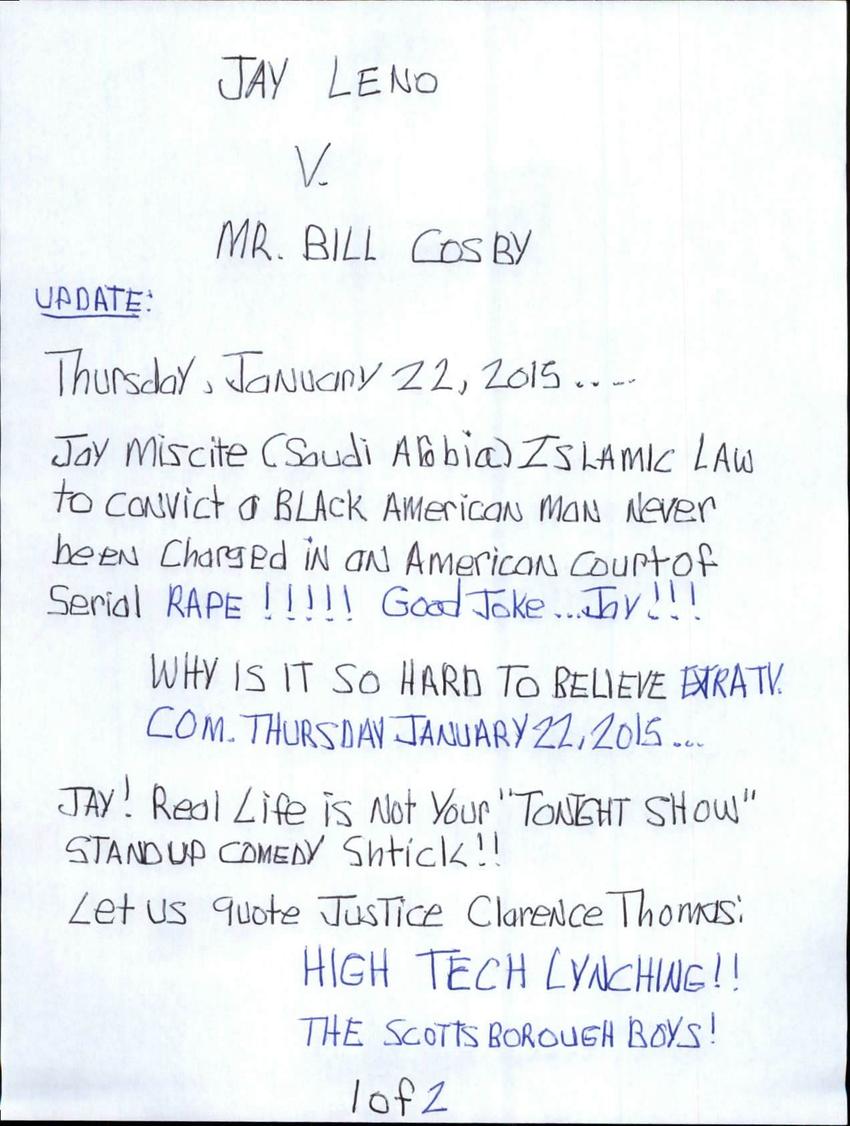 JAY LENO
V.
MR. BILL COSBY
UPDATE:
Thursday, January 22, 2015.....
Jay Miscite (Saudi Arabia) ISLAMIC LAW
to convict a BLACK AMERICAN MAN Never
been Charged in an American Court of
Serial RAPE !!!!! Good Joke...Jay!!!
WHY IS IT SO HARD TO BELIEVE EXTRATV.
COM. THURSDAY JANUARY 22, 2015...
JAY! Real Life is Not Your "TONIGHT SHOW"
STANDUP COMEDY Shtick!!
Let us quote Justice Clarence Thomas:
HIGH TECH LYNCHING!!
THE SCOTTSBOROUGH BOYS!
1 of 2